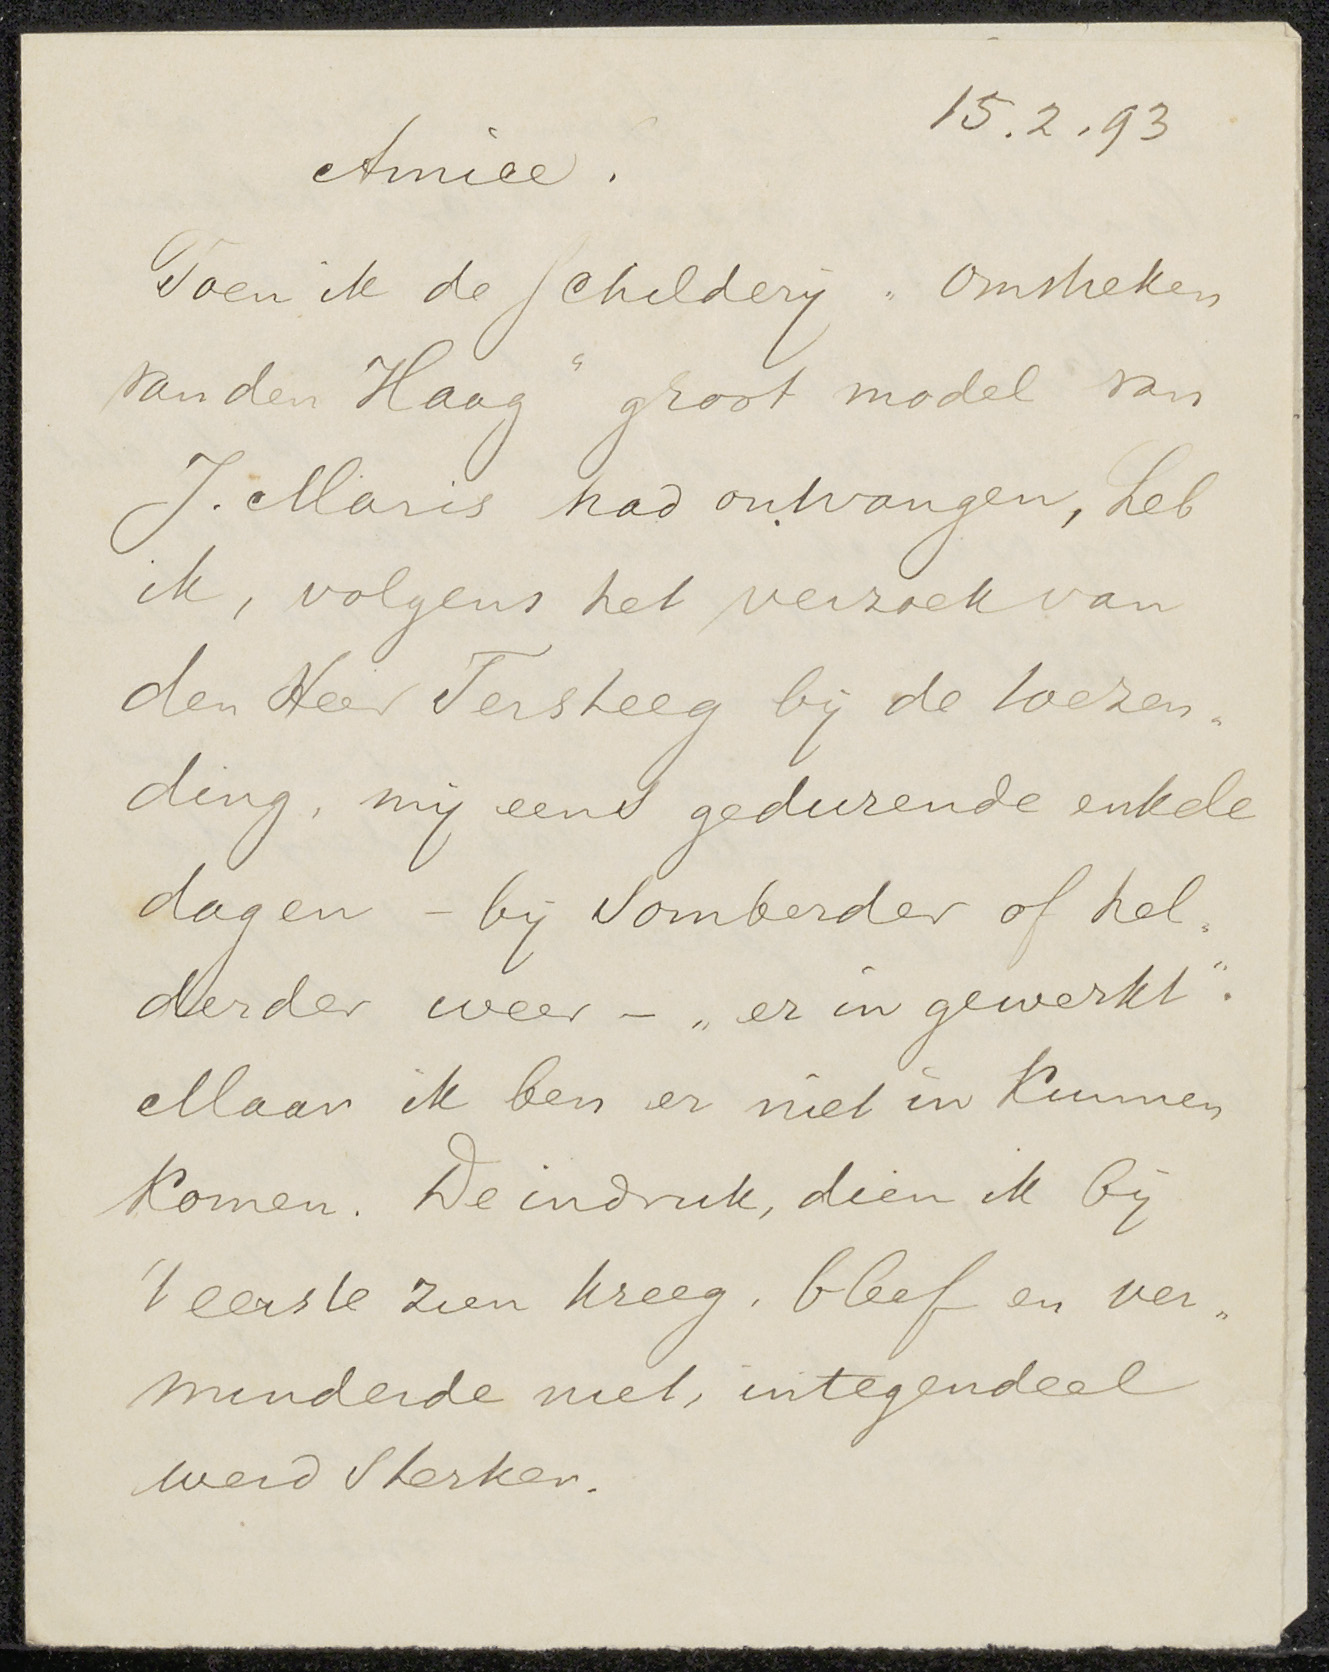 15.2.93
Amice.
Toen ik de schilderij „Omstreken
van den Haag" groot model van
J. Maris had ontvangen, heb
ik, volgens het verzoek van
den Heer Tersteeg bij de toezen„
ding, mij eens gedurende enkele
dagen – bij somberder of hel„
derder weer – „er in gewerkt".
Maar ik ben er niet in kunnen
komen. De indruk, dien ik bij
't eerste zien kreeg, bleef en ver„
minderde niet, integendeel
werd sterker.